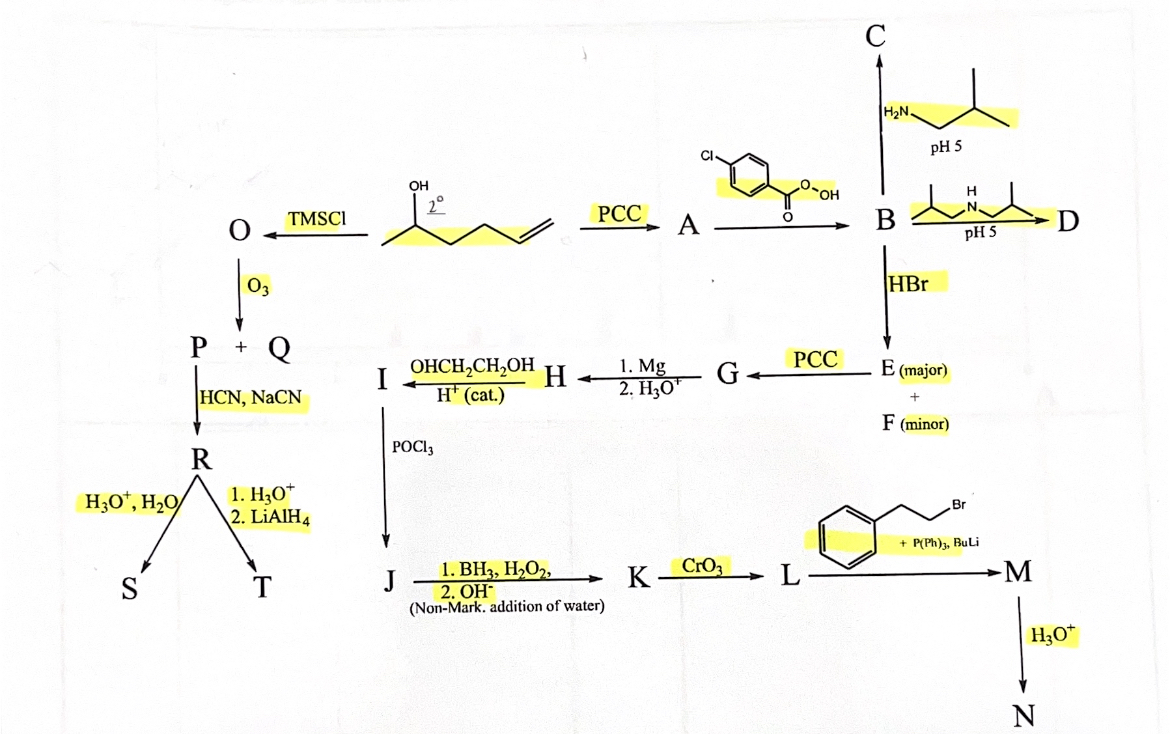 C
H₂N
pH 5
Cl
O
OH
O
OH
2°
O
TMSCl
PCC
A
B
H
N
pH 5
D
O₃
HBr
P + Q
HCN, NaCN
I
OHCH₂CH₂OH
H⁺ (cat.)
H
1. Mg
2. H₃O⁺
G
PCC
E (major)
+
F (minor)
POCl₃
R
H₃O⁺, H₂O
1. H₃O⁺
2. LiAlH₄
Br
+ P(Ph)₃, BuLi
S
T
J
1. BH₃, H₂O₂,
2. OH⁻
(Non-Mark. addition of water)
K
CrO₃
L
M
H₃O⁺
N